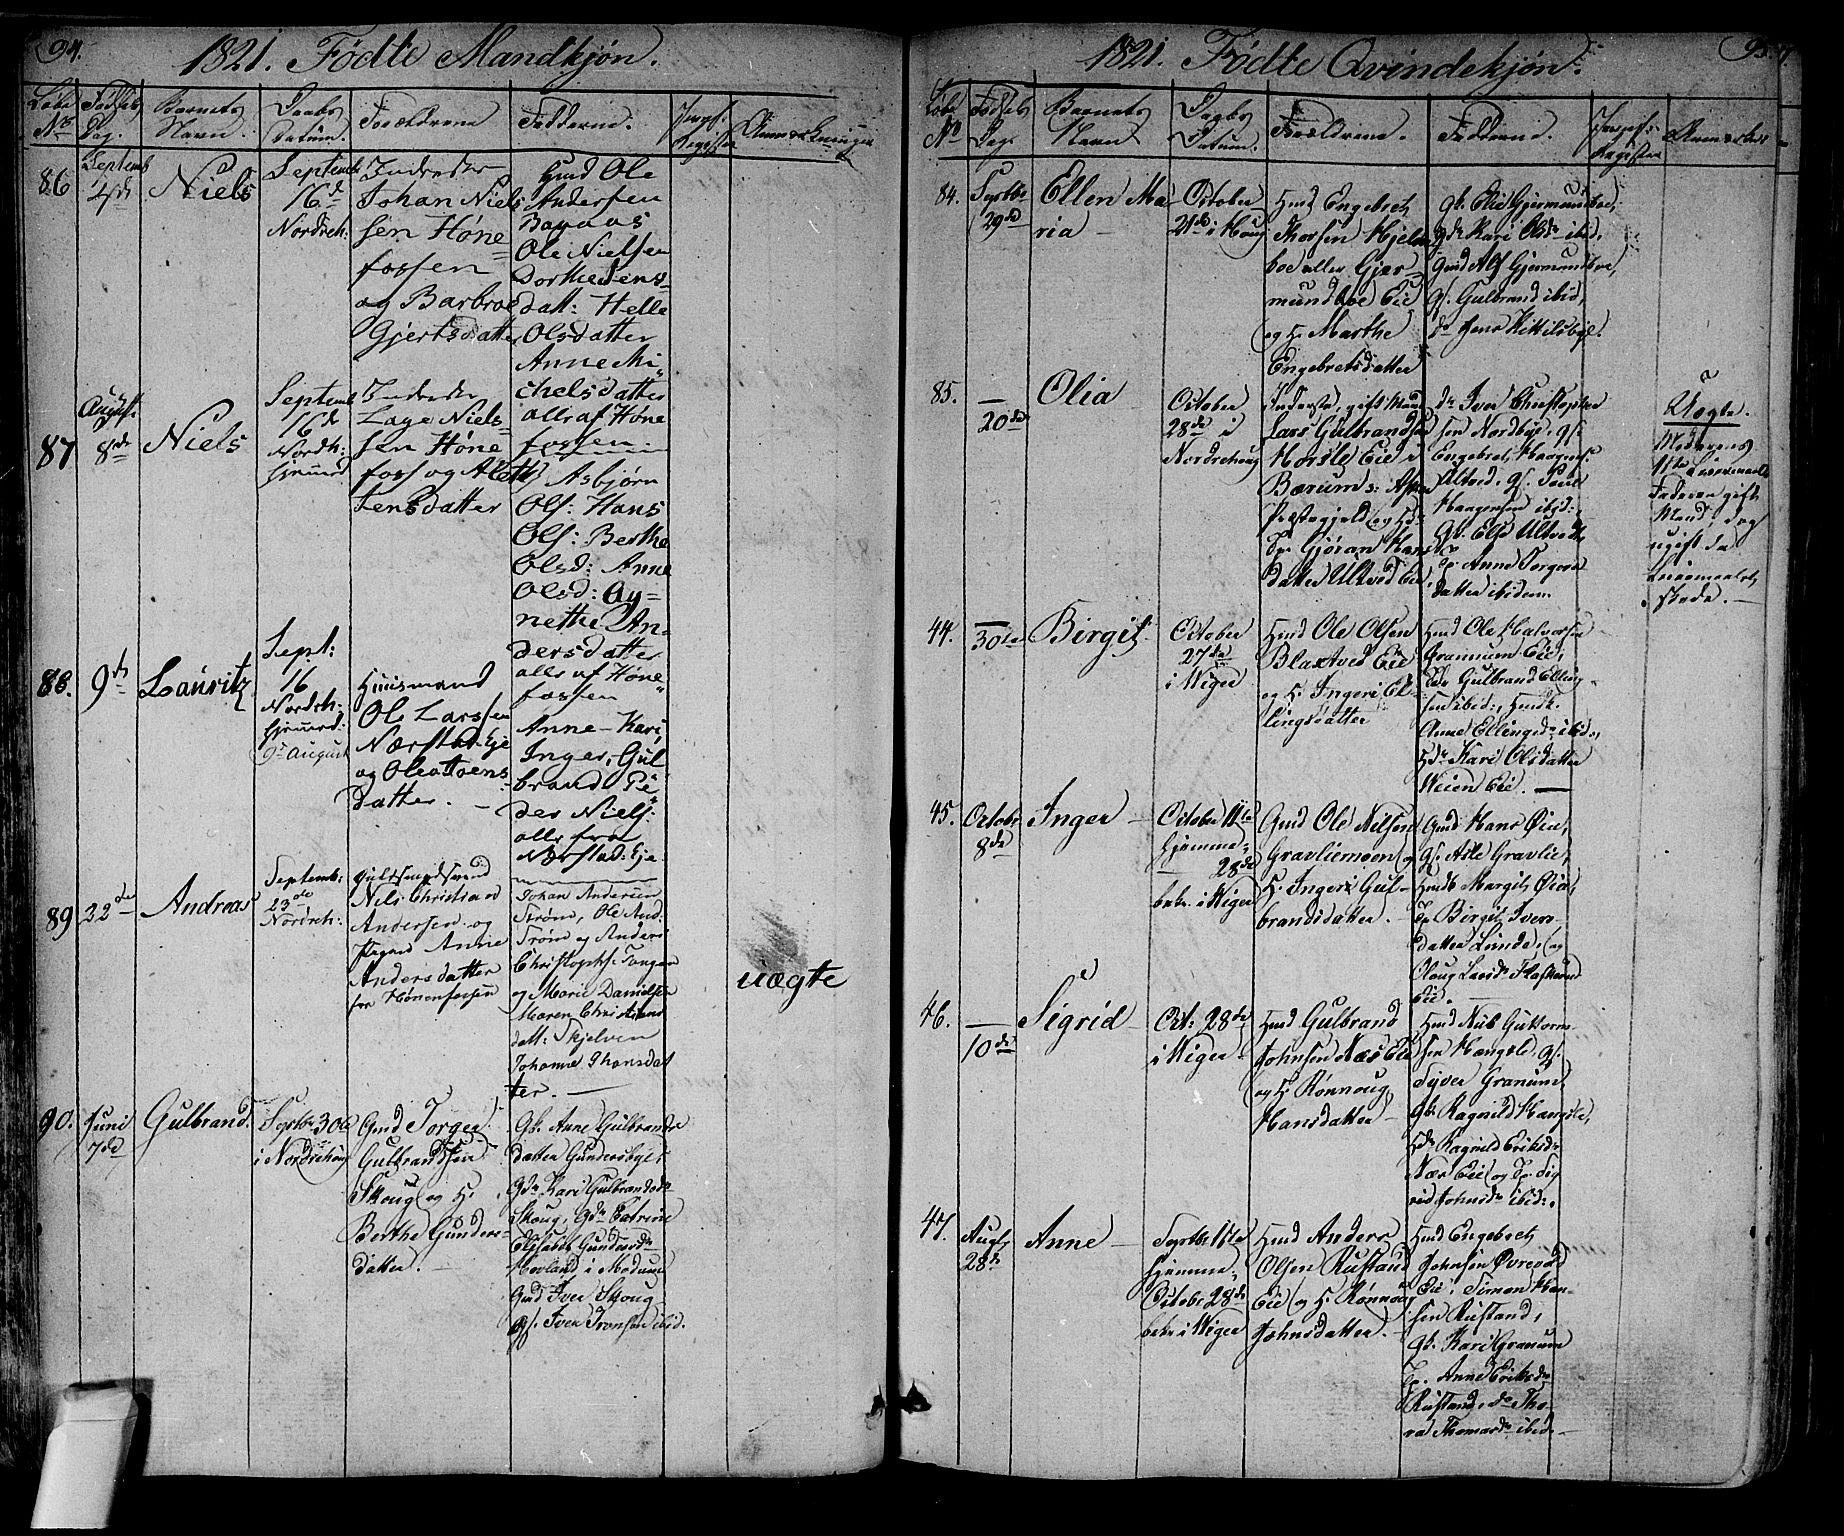 94.
1821. Födte Mandkjön.
Løbe No
Födsels Dag.
Barnets Navn.
Daabs Datum.
Forældrene
Fadderne.
86
Septemb 4de
Niels
Septemb 16d Nordreh:
Inderster
Johan Niels
sen Höne
fossen
og Barbroe
Gjertsdatter
Hmd Ole
Andersen
Bagaas
Ole Nielsen
Dorthe Jens
datt: Helle
Olsdatter
Anne Mi
chelsdatter
alle af Höne
fossen
87
August 8de
Niels
Septemb 16d Nordh:
Inderster
Lage Niels
sen Höne
foss og
Jensdatter
Asbjörn
Ols: Hans
Ols: Berthe
Olsd: Anne
Olsd: Ag
nethe An
dersdatter
alle af Höne
fossen
88.
9de
Lauritz
Sept: 16 Nordreh: 9de August
Huusmand
Ole Larssen
Nærstad. Eje
og Olea
datter.
Anne Kari,
Inger, Gul
brand Pe
der Niels:
alle fra
Nærstad: Eje
89
22de
Andreas
Septemb: 23de Nordreh:
Nils Christian
Andersen og
Pigen Anne
Andersdatter
fra Hönenfossen
Johan Andersen
Ström, Ole And.
Tröm og Anders
Christophs:
og Marie Danielsen
Maren Christians
datt: Skjelven
Johanne
ter.
uægte
90.
Juni 7de
Gulbrand.
Septbr 30te i Nordrehoug
Gmd Torger
Gulbrandsen
Skoug og H.
Berthe Gunders
datter.
Gk. Anne Gulbrands
datter Gundersbye
Gdr Kari Gulbrandsdr
Skoug, Gdr Catrine
Elisabet Gundersdr
Hovland i Modum
Gmd Iver Skoug
Gs. Iver Ivensen ibid.
95.
1821. Födte Qvindekjön.
Löbe No
Fødsels Dag
Barnets Navn
Daabs Datum.
Forældrene.
Fadderne.
84.
Septbr 29de
Ellen Ma
ria
October 21de i Houg
Hmd Engebret
Thorsen Hjelm
boe eller Gjer
mundboe Eie
og H. Marthe
Engebretsdatter
Gk. Elie Gjermundboe,
Gdr Kari Olsdr ibid,
Gmd Alf Gjermundboe,
Gs. Gulbrand ibid,
85.
20de
Olia
October 28de i Nordrehoug
Inderste, gift Mand
Lars Gulbrandsen
Horsle Eie i
Bærums: Asker
Præstegjeld og
Gjøran Hans
datter Ultved Eie
dr Iver Christopher
sen Nordbye, Gs.
Engebret Haagens:
Ultved, Gs. Poul
Haagensen ibid:
Gk. Else Ultved
Anne Torgers
datter ibidem.
Uægte.
Moderens
1ste Leiermaal
Faderen gift
Mand, dog
ugift da
Leiermaalet
skede.
44.
30te
Birgit
October 27de i Wiger
Hmd Ole Olsen
Blaxtved Eie
og H. Ingeri El
lingsdatter
Hmd Ole Halvorsen
Granum Eie,
Gulbrand Elling
sen ibid:, Hmdk.
Anne Ellingsdr ibid.,
Hdr Kari Olsdatter
Weien Eie.
45.
Octobr 8de
Inger
October 11te hjemme 28de bekr. i Wiger
Gmd Ole Nilsen
Gravliemoen og
H. Ingeri Gul
brandsdatter.
Gmd Hans Öia,
Gs. Asle Gravlie,
Hmdk Margit Öia,
Birgit Ivers
datter Lunde, og
Eie.
46.
10de
Sigrid
Oct: 28de i Wiger
Hmd Gulbrand
Johnsen Næs Eie
og H. Rönnoug
Hansdatter
Hmd Nub Guttorm
sen Hangsle, Gs.
Syver Granum
Gk. Ragnild Hangsle,
Hdr Ragnild Eriksdr
Næs Eie og Sig
rid Johnsdr ibid:.
47.
Augs. 28de
Anne
Septbr 11te hjemme October 28de bekr. i Wiger
Hmd Anders
Olsen Rustand
Eie og H. Rönnoug
Johnsdatter.
Hmd Engebret
Johnsen
Eie, Simon Han
sen Rustand,
Gk. Kari Granum
Anne Eriksdr
Rustand, do Tho
ra Thomasdr ibid.